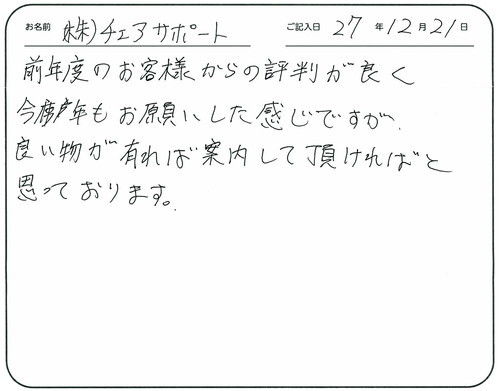 お名前 (株)チェアサポート ご記入日 27 年 12 月 21 日
前年度のお客様からの評判が良く
年もお願いした感じですが、
良い物が有れば案内して頂ければと
思っております。